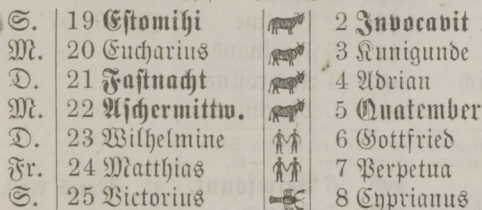 S. 19 Estomihi 2 Invocavit
M. 20 Eucharius 3 Kunigunde
D. 21 Fastnacht 4 Adrian
M. 22 Aschermittw. 5 Quatember
D. 23 Wilhelmine 6 Gottfried
Fr. 24 Matthias 7 Perpetua
S. 25 Victorius 8 Cyprianus